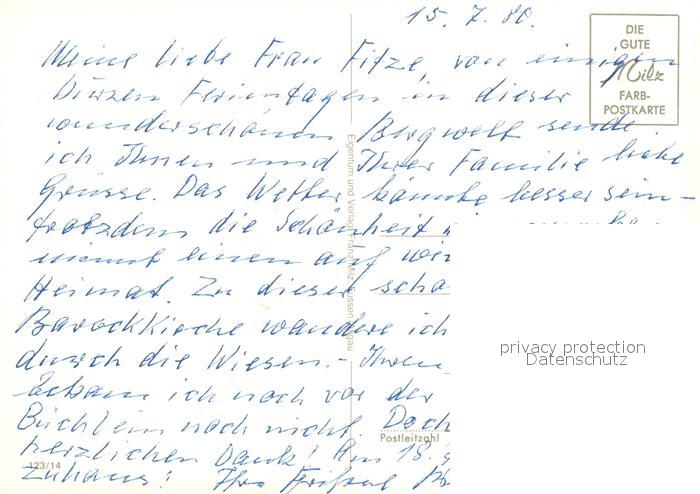 15. 7. 80.
DIE
GUTE
Milz
FARB-
POSTKARTE
Meine liebe Frau Fitze, von einigen
kurzen Ferientagen in dieser
wunderschönen Bergwelt sende
ich Ihnen und Ihrer Familie liebe
Grüsse. Das Wetter könnte besser sein -
trotzdem die Schönheit
nimmt einen auf wie
Heimat. Zu dieser schö
Barockkirche wandere ich
durch die Wiesen. - Ihren
bekam ich noch vor der
Büchlein noch nicht. Doch
herzlichen Dank! Am 18.
Zuhaus! Ihre
Eigentum und Verlag Franz Milz Füssen
Postleitzahl
123/14
privacy protection
Datenschutz